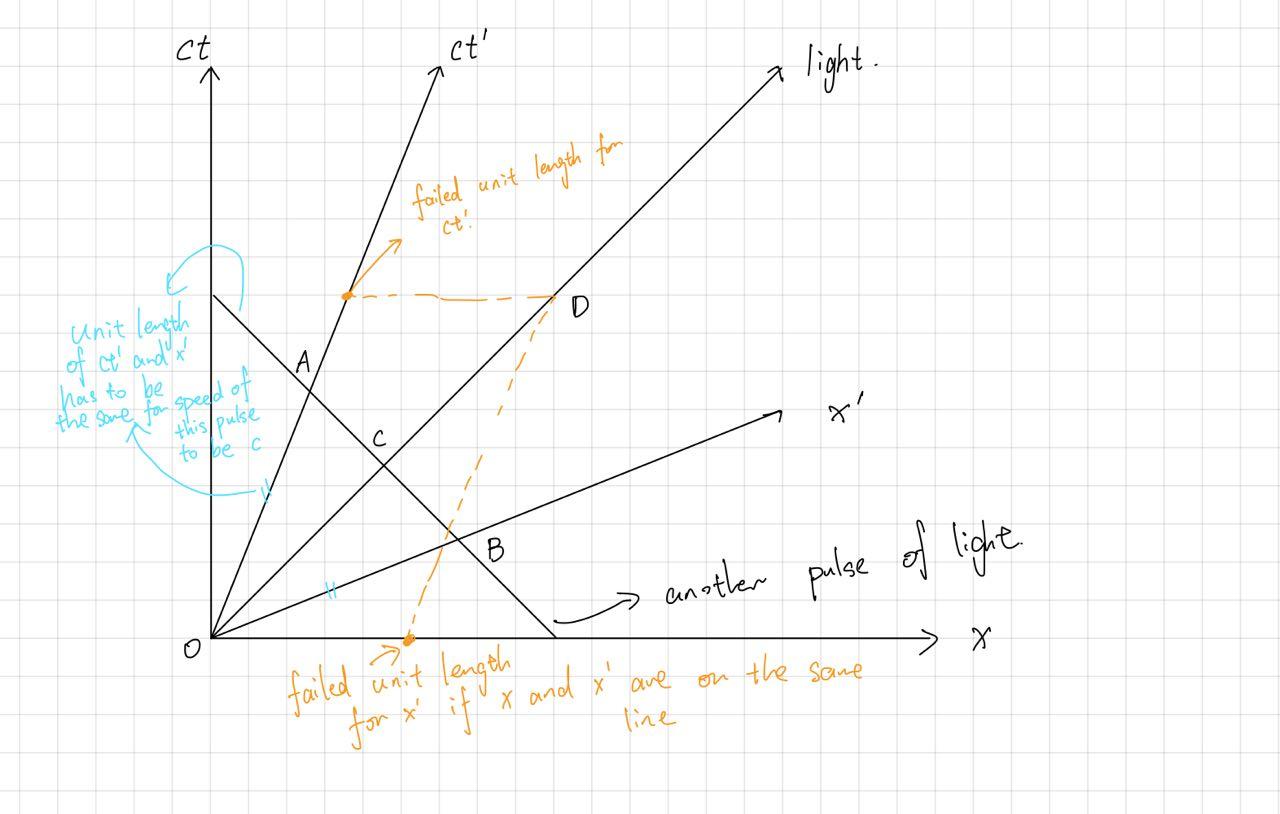 ct
ct'
light.
failed unit length for
ct'.
D
A
unit length
of ct' and x'
has to be
the same for speed of
this pulse
to be c
C
x'
B
another pulse of light.
O
x
failed unit length
for x' if x and x' are on the same
line